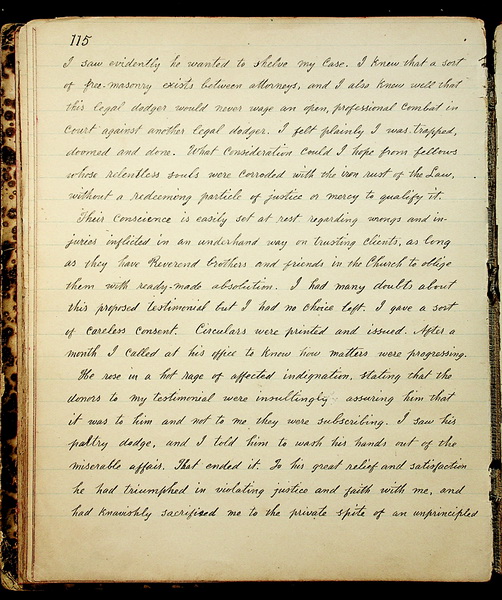 115
I saw evidently he wanted to shelve my case. I knew that a sort
of free-masonry exists between attorneys, and I also knew well that
this legal dodger would never wage an open, professional combat in
Court against another legal dodger. I felt plainly I was trapped,
doomed and done. What consideration could I hope from fellows
whose relentless souls were corroded with the iron rust of the Law,
without a redeeming particle of justice or mercy to qualify it.
Their conscience is easily set at rest regarding wrongs and in-
juries inflicted in an underhand way on trusting clients, as long
as they have Reverend brothers and friends in the Church to oblige
them with ready-made absolution. I had many doubts about
this proposed testimonial but I had no choice left. I gave a sort
of careless consent. Circulars were printed and issued. After a
month I called at his office to know how matters were progressing.
He rose in a hot rage of affected indignation, stating that the
donors to my testimonial were insultingly assuring him that
it was to him and not to me, they were subscribing. I saw his
paltry dodge, and I told him to wash his hands out of the
miserable affair. That ended it. To his great relief and satisfaction
he had triumphed in violating justice and faith with me, and
had knavishly sacrificed me to the private spite of an unprincipled